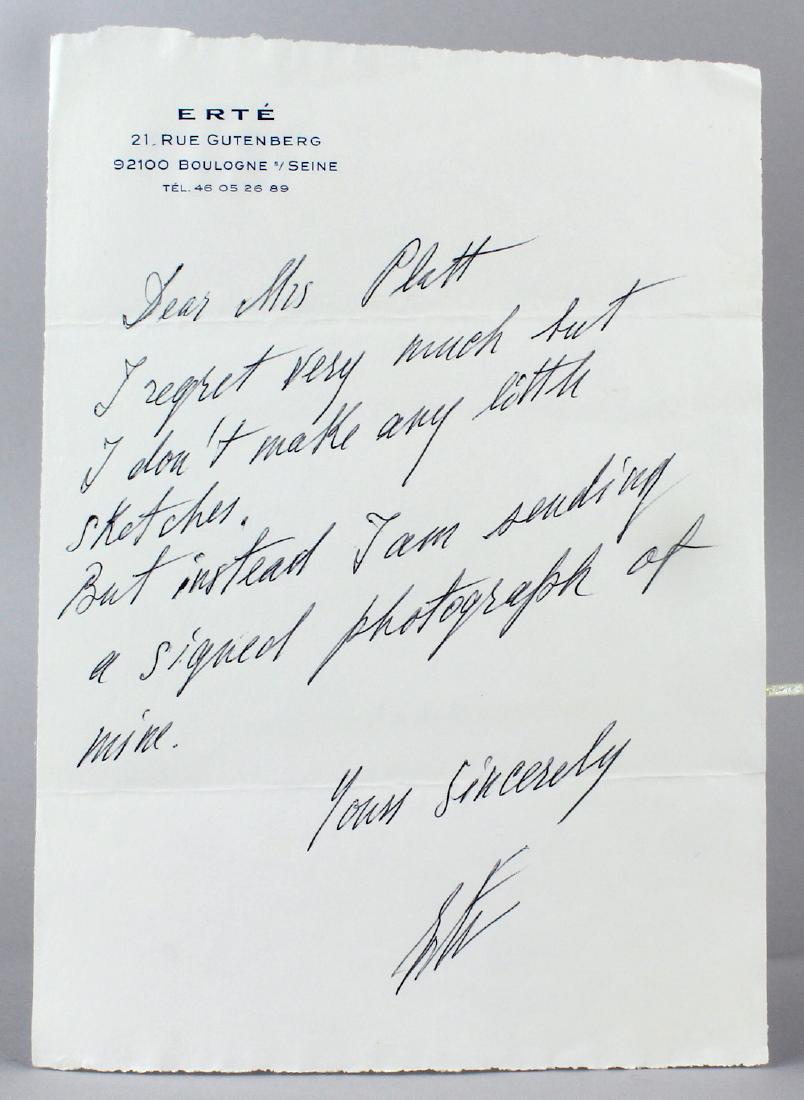 ERTÉ
21, RUE GUTENBERG
92100 BOULOGNE S/ SEINE
TÉL. 46 05 26 89
Dear Mrs Platt
I regret very much but
I don't make any little
sketches.
But instead I am sending
a signed photograph of
mine.
Yours Sincerely
Erté